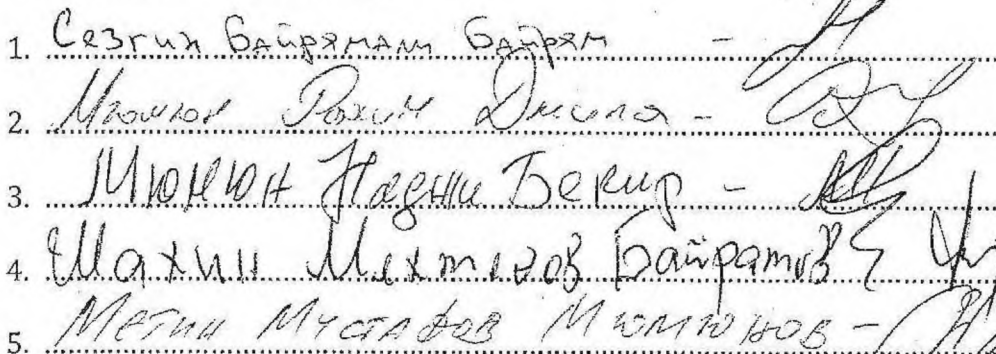 1. Сезгин Байрямали Байрям -
2. Мюмюн Рахим -
3. Мюмюн Наджи Бекир -
4. Шахин Байрамов
5. Метин Мустафов Мюмюнов -